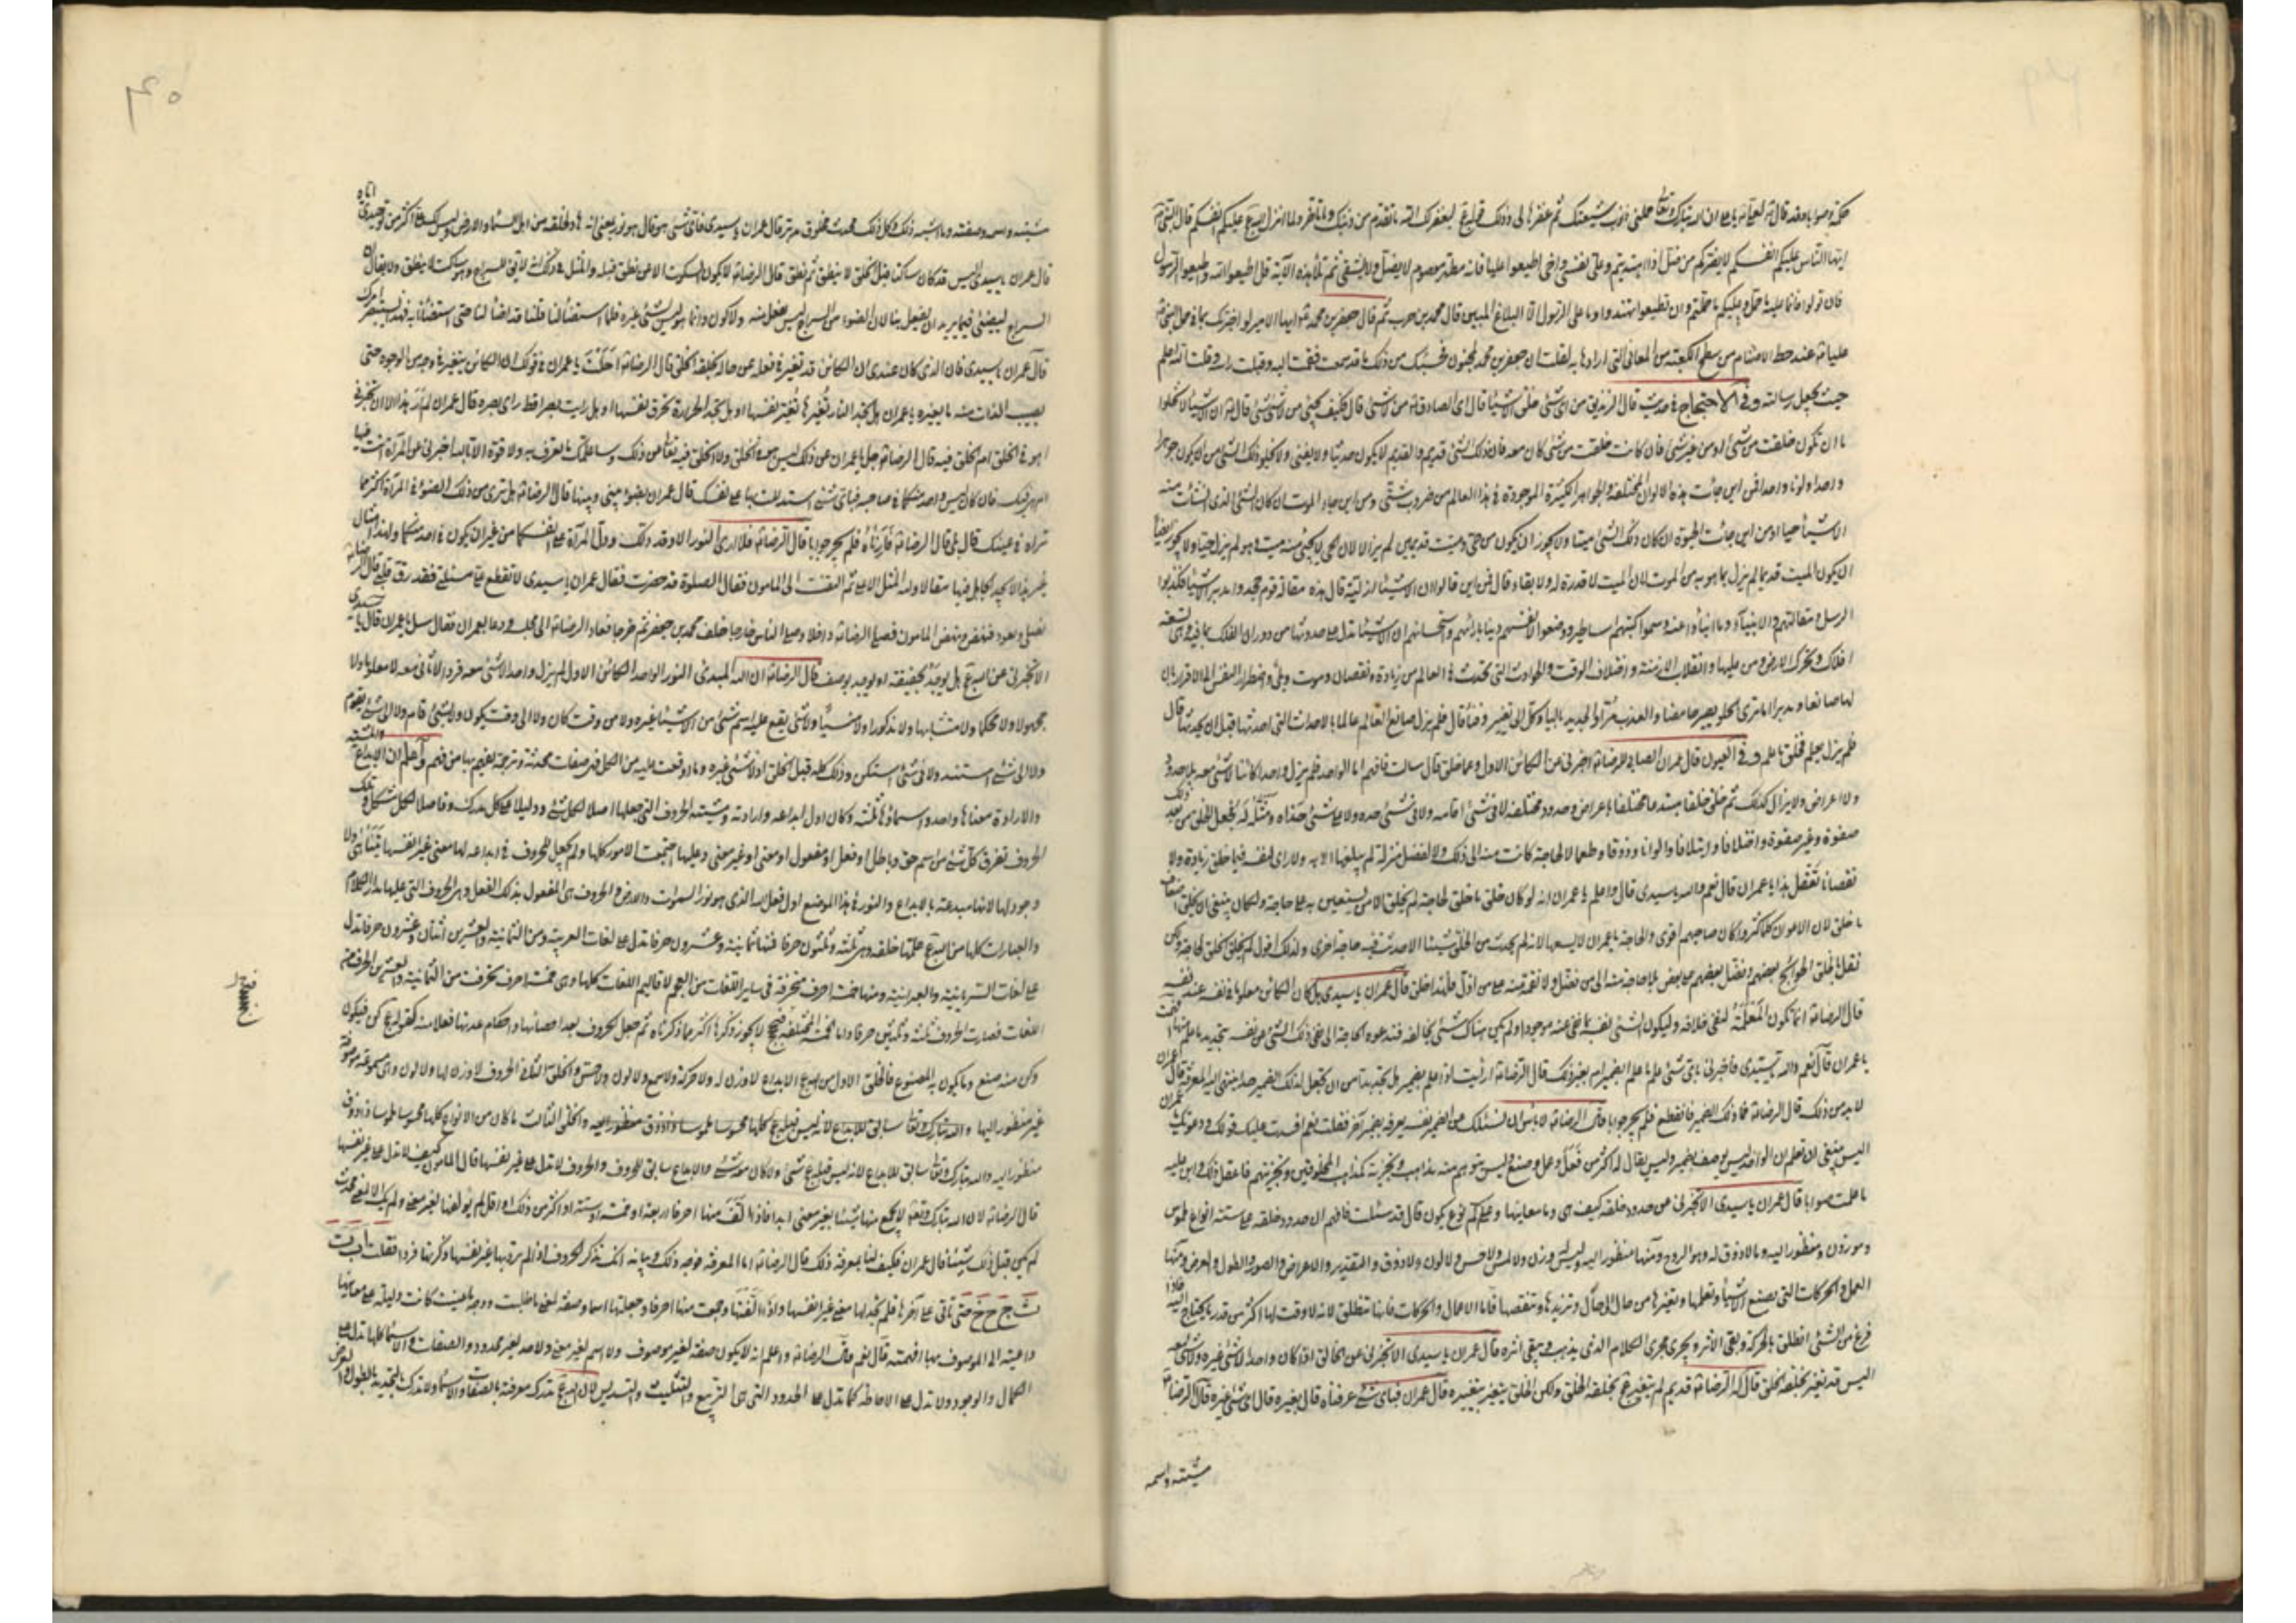 ايها الناس عليكم انفسكم لا يضركم من ضل اذا اهتديتم وعلى نفسى واخى اطيعوا عليا فانه مطهر معصوم لا يضل ولا يشقى ثم تلا هذه الآية قل اطيعوا الله واطيعوا الرسول
فان تولوا فانما عليه ما حمل وعليكم ما حملتم وان تطيعوه تهتدوا وما على الرسول الا البلاغ المبين قال محمد بن حرب ثم قال جعفر بن محمد ايها الامير لو اخبرتك بما فى حمل النبى
عليا عند حط الاصنام من سطح الكعبة من المعانى التى ارادها به لقلت ان جعفر بن محمد لمجنون فحسبك من ذلك ما قد سمعت فقمت اليه وقبلت راسه وقلت الله اعلم
حيث يجعل رسالته وفى الاحتجاج فى حديث قال الزنديق من اى شئ خلق الاشياء قال اى الصادق من لا شئ قال فكيف يجئ من لا شئ شئ قال ان الاشياء لا تخلوا
اما ان تكون خلقت من شئ او من غير شئ فان كانت خلقت من شئ كان معه فان ذلك الشئ قديم والقديم لا يكون حديثا ولا يفنى ولا يخلو ذلك الشئ من ان يكون جوهرا
واحدا ولونا واحدا فمن اين جائت هذه الالوان المختلفة والجواهر الكثيرة الموجودة فى هذا العالم من ضروب شتى ومن اين جاء الموت ان كان الشئ الذى انشات منه
الاشياء حيا او من اين جائت الحيوة ان كان ذلك الشئ ميتا ولا يجوز ان يكون من حى وميت قديمين لم يزالا لان الحى لا يجئ منه ميت وهو لم يزل حيا ولا يجوز ايضا
ان يكون الميت قديما لم يزل بما هو به من الموت لان الميت لا قدرة له ولا بقاء وقال فمن اين قالوا ان الاشياء ازلية قال هذه مقالة قوم جحدوا مدبر الاشياء فكذبوا
الرسل ومقالتهم والانبياء وما انبأوا عنه وسموا كتبهم اساطير ووضعوا لانفسهم دينا بارائهم واستحسانهم ان الاشياء تدل على حدوثها من دوران الفلك بما فيه وهى سبعة
افلاك وتحرك الارض ومن عليها وانقلاب الازمنة واختلاف الوقت والحوادث التى تحدث فى العالم من زيادة ونقصان وموت وبلى واضطرار النفس الى الاقرار بان
لها صانعا ومدبرا اما ترى الحلو يصير حامضا والعذب مرا والجديد باليا وكل الى تغير وفناء قال فلم يزل صانع العالم عالما بالاحداث التى احدثها قبل ان يحدثها قال
فلم يزل يعلم فخلق ما علم وفى العيون قال عمران الصابى للرضا اخبرنى عن الكائن الاول وعما خلق قال سالت فافهم اما الواحد فلم يزل واحدا كائنا لا شئ معه بلا حدود
ولا اعراض ولا يزال كذلك ثم خلق خلقا مبتدعا مختلفا باعراض وحدود مختلفة لا فى شئ اقامه ولا فى شئ حده ولا على شئ حذاه ومثله له فجعل الخلق من بعد ذلك
صفوة وغير صفوة واختلافا وايتلافا والوانا وذوقا وطعما لا لحاجة كانت منه الى ذلك ولا لفضل منزلة لم يبلغها الا به ولا راى لنفسه فيما خلق زيادة ولا
نقصانا تعقل هذا يا عمران قال نعم والله يا سيدى قال واعلم يا عمران انه لو كان خلق ما خلق لحاجة لم يخلق الا من يستعين به على حاجته ولكان ينبغى ان يخلق اضعاف
ما خلق لان الاعوان كلما كثروا كان صاحبهم اقوى والحاجة يا عمران لا يسعها لانه لم يحدث من الخلق شيئا الا حدثت فيه حاجة اخرى ولذلك اقول لم يخلق الخلق لحاجة ولكن
نقل بالخلق الحوائج بعضهم الى بعض وفضل بعضهم على بعض بلا حاجة منه الى من فضل ولا نقمة منه على من اذل فلهذا خلق قال عمران يا سيدى هل كان الكائن معلوما فى نفسه عند نفسه
قال الرضا انما تكون المعلمة لنفى خلافه وليكون الشئ نفسه بما نفى عنه موجودا ولم يكن هناك شئ يخالفه فتدعوه الحاجة الى نفى ذلك الشئ عن نفسه بتحديد ما علم منها افهمت
يا عمران قال نعم والله يا سيدى فاخبرنى باى شئ علم ما علم ابضمير ام بغير ذلك قال الرضا ارايت اذا علم بضمير هل تجد بدا من ان تجعل لذلك الضمير حدا ينتهى اليه المعرفة قال عمران
لا بد من ذلك قال الرضا فما ذلك الضمير فانقطع فلم يحر جوابا قال الرضا لا باس ان نسئلك عن الضمير نفسه يعرفه بضمير آخر فقلت نعم افسدت عليك قولك ودعوتك يا عمران
اليس ينبغى ان تعلم ان الواحد ليس يوصف بضمير وليس يقال له اكثر من فعل وعمل وصنع وليس يتوهم منه مذاهب وتجزية كمذاهب المخلوقين وتجزيتهم فاعقل ذلك وابن عليه
ما علمت صوابا قال عمران يا سيدى الا تخبرنى عن حدود خلقه كيف هى وما معانيها وعلى كم نوع يكون قال قد سئلت فافهم ان حدود خلقه على ستة انواع ملموس
وموزون ومنظور اليه وما لا ذوق له وهو الروح ومنها منظور اليه وليس له وزن ولا لمس ولا حس ولا لون ولا ذوق والتقدير والاعراض والصور والطول والعرض ومنها
العمل والحركات التى تصنع الاشياء وتعملها وتغيرها من حال الى حال وتزيدها وتنقصها فاما الاعمال والحركات فانها تنطلق لانه لا وقت لها اكثر من قدر ما يحتاج اليه فاذا
فرغ من الشئ انطلق بالحركة وبقى الاثر ويجرى مجرى الكلام الذى يذهب ويبقى اثره قال عمران يا سيدى الا تخبرنى عن الخالق اذا كان واحدا لا شئ غيره ولا شئ معه
اليس قد تغير بخلقه الخلق قال له الرضا قديم لم يتغير عز وجل بخلقه الخلق ولكن الخلق يتغير بتغييره قال عمران فباى شئ عرفناه قال بغيره قال اى شئ غيره قال الرضا
مشيته واسمه
٤٠
مشيته واسمه وصفته وما اشبه ذلك وكل ذلك محدث مخلوق مدبر قال عمران يا سيدى فاى شئ هو قال هو نور بمعنى انه هاد لخلقه من اهل السماء واهل الارض وليس لك على اكثر من توحيدى اياه
قال عمران يا سيدى اليس قد كان ساكتا قبل الخلق لا ينطق ثم نطق قال الرضا لا يكون السكوت الا عن نطق قبله والمثل فى ذلك انه لا يقال للسراج هو ساكت لا ينطق ولا يقال ان
السراج ليضئ فيما يريد ان يفعل بنا لان الضوء من السراج ليس بفعل منه ولا كون وانما هو ليس شئ غيره فلما استضاء لنا قلنا قد اضاء لنا حتى استضأنا به فبهذا تستبصر امرك
قال عمران يا سيدى فان الذى كان عندى ان الكائن قد تغير فى فعله عن حاله بخلقه الخلق قال الرضا احلت يا عمران فى قولك ان الكائن يتغير فى وجه من الوجوه حتى
يصيب الذات منه ما يغيره يا عمران هل تجد النار تغيرها تغير نفسها او هل تجد الحرارة تحرق نفسها او هل رايت بصيرا قط راى بصره قال عمران لم ار هذا الا ان تخبرنى
اهو فى الخلق ام الخلق فيه قال الرضا جل يا عمران عن ذلك ليس هو فى الخلق ولا الخلق فيه تعالى عن ذلك وساعلمك ما تعرفه به ولا قوة الا بالله اخبرنى عن المرآة انت فيها
ام هى فيك فان كان ليس واحد منكما فى صاحبه فباى شئ استدللت بها على نفسك قال عمران بضوء بينى وبينها قال الرضا هل ترى من ذلك الضوء فى المرآة اكثر مما
تراه فى عينك قال نعم قال الرضا فارناه فلم يحر جوابا قال الرضا فلا ارى النور الا وقد دلك ودل المرآة على انفسكما من غير ان يكون فى واحد منكما ولهذا امثال
غير هذا لا يجد الجاهل فيها مقالا ولله المثل الاعلى ثم التفت الى المامون فقال الصلوة قد حضرت فقال عمران يا سيدى لا تقطع على مسئلتى فقد رق قلبى قال الرضا
نصلى ونعود فنهض ونهض المامون فصلى الرضا داخلا وصلى الناس خارجا خلف محمد بن جعفر ثم خرجا فعاد الرضا الى مجلسه ودعا بعمران فقال سل يا عمران قال يا سيدى
الا تخبرنى عن الله عز وجل هل يوحد بحقيقة او يوحد بوصف قال الرضا ان الله المبدئ النور الواحد الكائن الاول لم يزل واحدا لا شئ معه فردا لا ثانى معه لا معلوما ولا
مجهولا ولا محكما ولا متشابها ولا مذكورا ولا منسيا ولا شئ يقع عليه اسم شئ من الاشياء غيره ولا من وقت كان ولا الى وقت يكون ولا بشئ قام ولا الى شئ يقوم
ولا الى شئ استند ولا فى شئ استكن وذلك كله قبل الخلق اذ لا شئ غيره وما اوقعت عليه من الكل فهى صفات محدثة وترجمة يفهم بها من فهم واعلم ان الابداع والمشية
والارادة معناها واحد واسماؤها ثلثة وكان اول ابداعه وارادته ومشيته الحروف التى جعلها اصلا لكل شئ ودليلا على كل مدرك وفاصلا لكل مشكل وتلك
الحروف تفرق كل شئ من اسم حق وباطل او فعل او مفعول او معنى او غير معنى وعليها اجتمعت الامور كلها ولم يجعل للحروف فى ابداعه لها معنى غير انفسها يتناهى ولا
وجود لها لانها مبدعة بالابداع والنور فى هذا الموضع اول فعل الله الذى هو نور السموات والارض والحروف هى المفعول بذلك الفعل وهى الحروف التى عليها مدار الكلام
والعبارات كلها من الله عز وجل علمها خلقه وهى ثلثة وثلثون حرفا فمنها ثمانية وعشرون حرفا تدل على لغات العربية ومن الثمانية والعشرين اثنان وعشرون حرفا تدل
على لغات السريانية والعبرانية ومنها خمسة احرف متحرفة فى ساير اللغات من العجم لاقاليم اللغات كلها وهى خمسة احرف تحرفت من الثمانية والعشرين الحرف من
اللغات فصارت الحروف ثلثة وثلثين حرفا واما الخمسة المختلفة فحجج لا يجوز ذكرها اكثر مما ذكرناه ثم جعل الحروف بعد احصائها واحكام عدتها فعلا منه كقوله عز وجل كن فيكون
وكن منه صنع وما يكون به المصنوع فالخلق الاول من الله عز وجل الابداع لا وزن له ولا حركة ولا سمع ولا لون ولا حس والخلق الثانى الحروف لا وزن لها ولا لون وهى مسموعة موصوفة
غير منظور اليها والخلق الثالث ما كان من الانواع كلها محسوسا ملموسا ذا ذوق
منظورا اليه والله تبارك وتعالى سابق للابداع لانه ليس قبله عز وجل شئ ولا كان معه شئ والابداع سابق للحروف والحروف لا تدل على غير نفسها قال المامون كيف لا تدل على غير نفسها
قال الرضا لان الله تبارك وتعالى لا يجمع منها شيئا بغير معنى ابدا فاذا الف منها احرفا اربعة او خمسة او ستة او اكثر من ذلك او اقل لم يؤلفها لغير معنى ولم يك الا لمعنى محدث
لم يكن قبل ذلك شيئا قال عمران فكيف لنا بمعرفة ذلك قال الرضا اما المعرفة فوجه ذلك وبيانه انك تذكر الحروف اذا لم ترد بها غير نفسها ذكرتها فردا فقلت ا ب ت
ث ج ح خ حتى تاتى على آخرها فلم تجد لها معنى غير انفسها واذا الفتها وجمعت منها احرفا وجعلتها اسما وصفة لمعنى ما طلبت ووجه ما عنيت كانت دليلة على معانيها
داعية الى الموصوف بها افهمته قال نعم قال الرضا واعلم انه لا يكون صفة لغير موصوف ولا اسم لغير معنى ولا حد لغير محدود والصفات والاسماء كلها تدل على
الكمال والوجود ولا تدل على الاحاطة كما تدل على الحدود التى هى التربيع والتثليث والتسديس لان الله عز وجل تدرك معرفته بالصفات والاسماء ولا تدرك بالتحديد بالطول والعرض